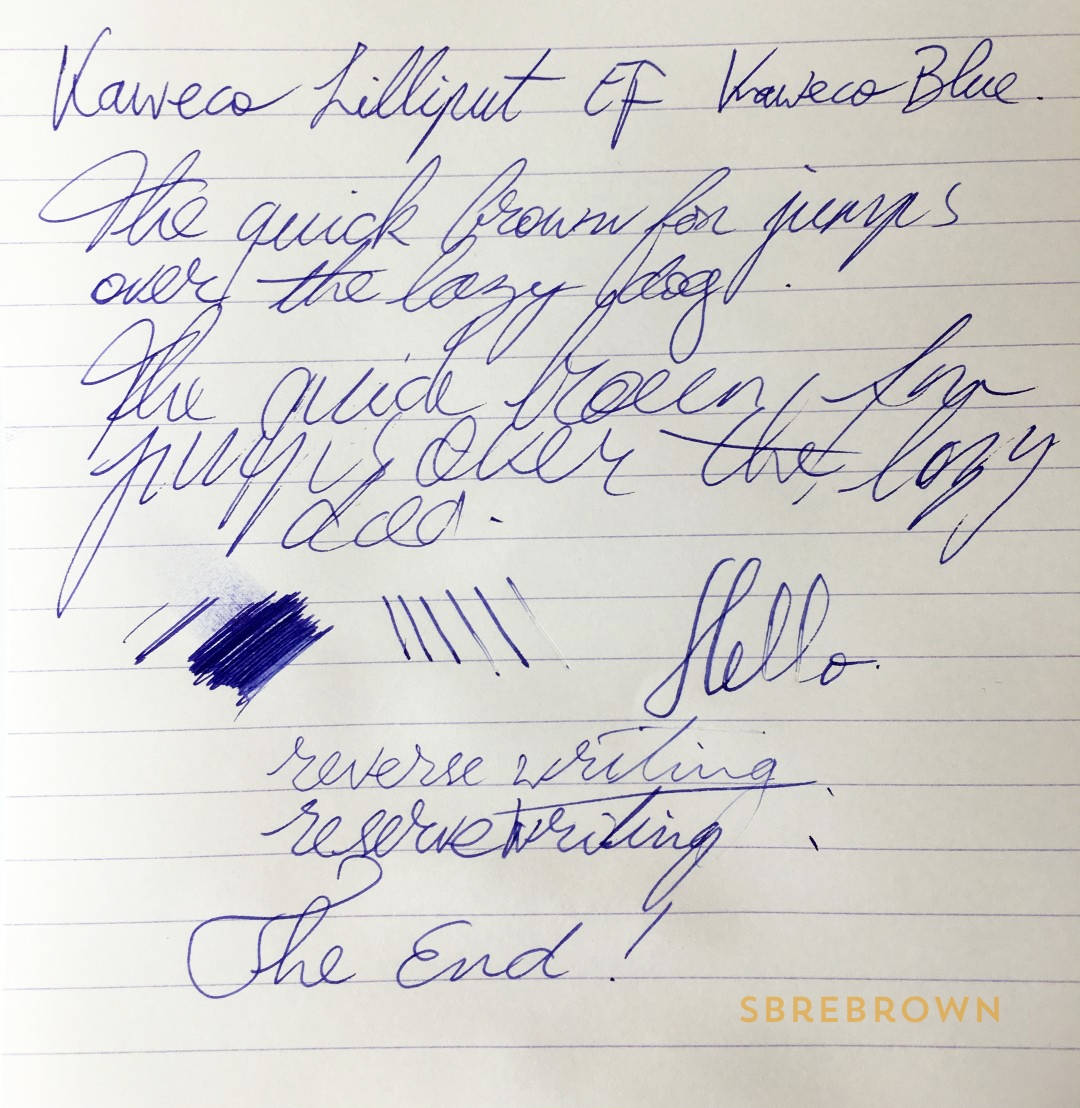 Kaweco Lilliput EF Kaweco Blue.
The quick brown fox jumps
over the lazy dog.
The quick brown fox
jumps over the lazy
dog.
Hello.
reverse writing
reserve writing
The End!
SBREBROWN